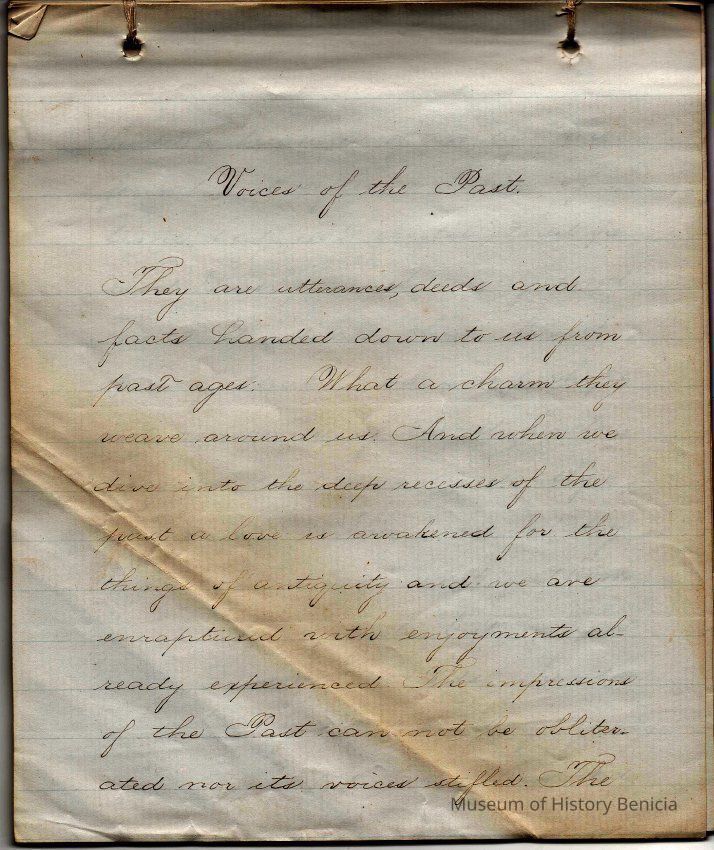 Voices of the Past.
They are utterances, deeds and
facts handed down to us from
past ages. What a charm they
weave around us. And when we
dive into the deep recesses of the
past a love is awakened for the
things of antiquity and we are
enraptured with enjoyments al-
ready experienced. The impressions
of the Past can not be obliter-
ated nor its voices stifled. The
Museum of History Benicia